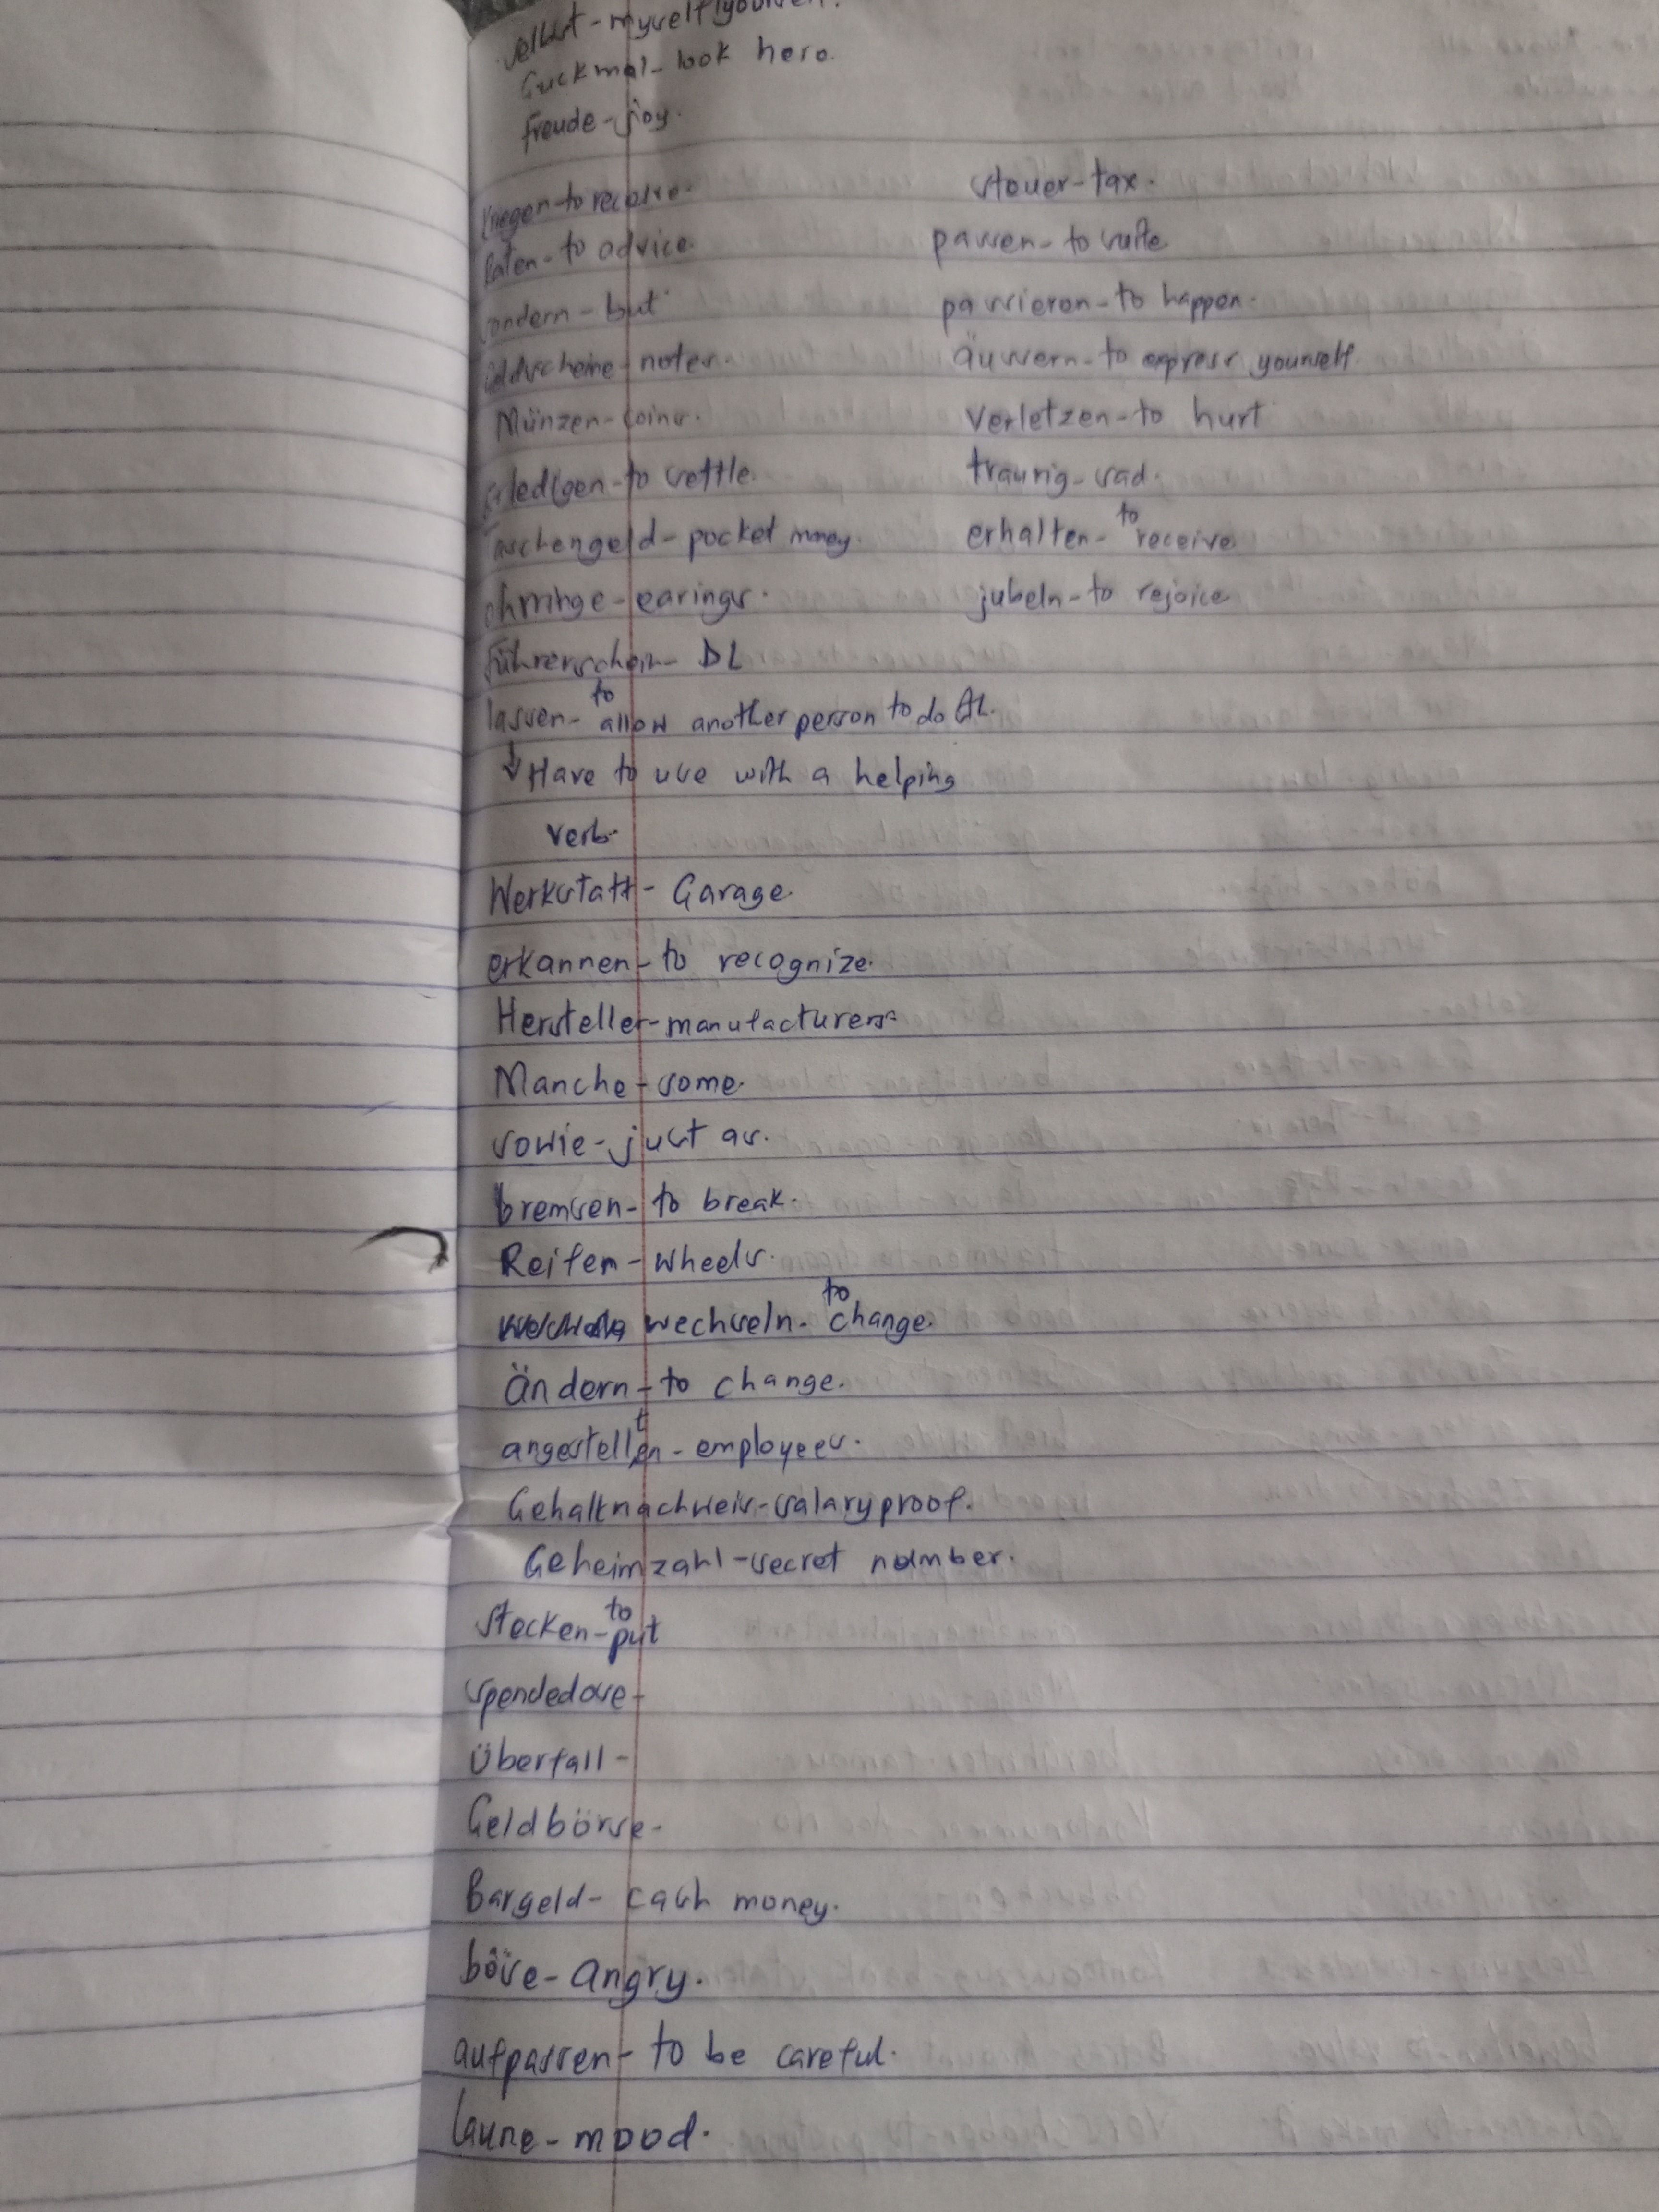 selbst - myself/yourself.
Guckmal - look here.
freude - joy.
kriegen - to receive.
Raten - to advice.
sondern - but
Geldscheine - notes.
Münzen - coins.
erledigen - to settle.
Taschengeld - pocket money.
ohrringe - earings.
führerschein - DL
lassen - to allow another person to do
↓ Have to use with a helping
verb.
Werkstatt - Garage.
erkannen - to recognize.
Hersteller - manufacturers
Manche - some.
sowie - just as.
bremsen - to break.
Reifen - wheels.
wechseln - to change.
Ändern - to change.
angestellten - employees.
Gehaltnachweis - salary proof.
Geheimzahl - secret number.
stecken - to put
spendedose -
Überfall -
Geldbörse -
Bargeld - cash money.
böse - angry.
aufpassen - to be careful.
laune - mood.
steuer - tax.
passen - to suite
passieren - to happen.
äussern - to express yourself.
verletzen - to hurt
traurig - sad.
erhalten - to receive
jubeln - to rejoice